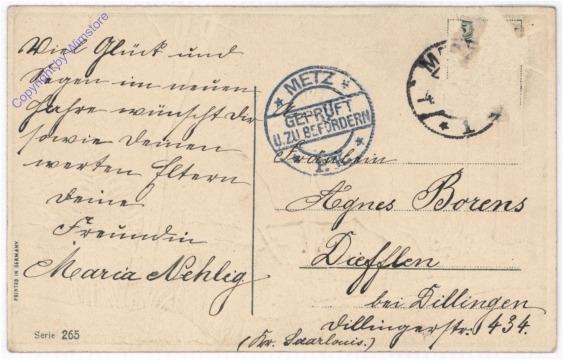 Viel Glück und
Segen im neuen
Jahre wünscht dir
sowie deinen
werten Eltern
deine
Freundin
Maria Nehlig
Copyright by Wimstore
PRINTED IN GERMANY
Serie 265
METZ
GEPRÜFT
U. ZU BEFÖRDERN
Fräulein
Agnes Borens
Diefflen
bei Dillingen
Dillingerstr. 434.
(Kr. Saarlouis.)